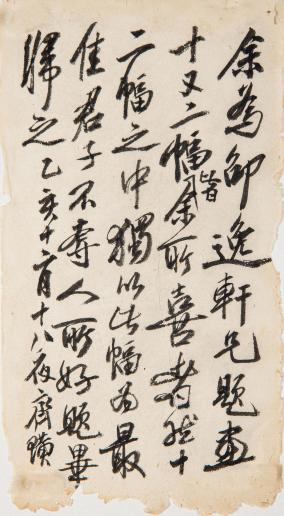 余為邵逸軒兄題畫
十又二幅皆余所喜者然十
二幅之中獨以此幅為最
佳君子不奪人所好題畢
歸之乙亥十二月十八夜齊璜